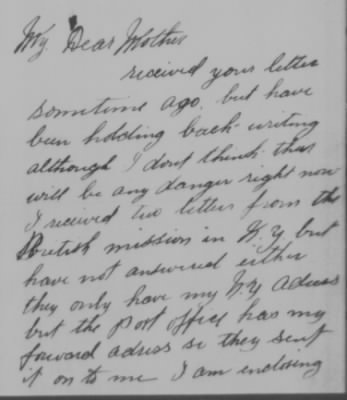 My Dear Mother
received your letter
sometime ago. but have
been holding back writing
although I dont think that
will be any danger right now
I received two letter from the
British mission in N.Y but
have not answered either
they only have my N.Y adress
but the post office has my
forward adress so they sent
it on to me I am enclosing